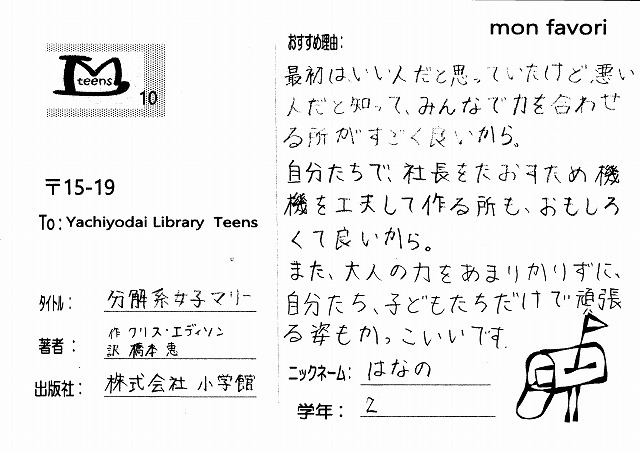 M
teens
10
〒15-19
To: Yachiyodai Library Teens
タイトル: 分解系女子マリー
著者: 作 クリス・エディソン
訳 橋本 恵
出版社: 株式会社 小学館
mon favori
おすすめ理由:
最初は、いい人だと思っていたけど、悪い
人だと知って、みんなで力を合わせ
る所がすごく良いから。
自分たちで、社長をたおすため機
機を工夫して作る所も、おもしろ
くて良いから。
また、大人の力をあまりかりずに、
自分たち、子どもたちだけで頑張
る姿もかっこいいです.
ニックネーム: はなの
学年: 2